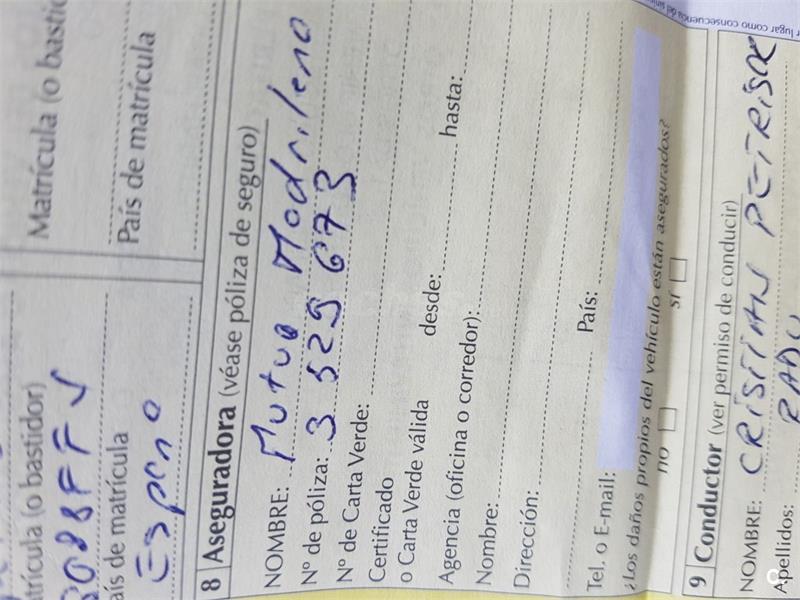 Matrícula (o bastidor
País de matrícula
trícula (o bastidor)
aís de matrícula
España
8 Aseguradora (véase póliza de seguro)
NOMBRE: Mutua Madrileña
Nº de póliza: 3 529 673
Nº de Carta Verde:
Certificado
o Carta Verde válida desde: hasta:
Agencia (oficina o corredor):
Nombre:
Dirección:
País:
Tel. o E-mail:
¿Los daños propios del vehículo están asegurados?
no sí
9 Conductor (ver permiso de conducir)
NOMBRE: CRISTIAN PETRISOR
Apellidos: RADU
r lugar como consecuencia del